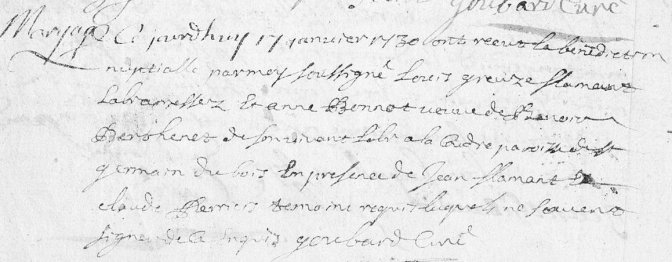 Goubard Curé
Maryage Ce jourdhuy 17 janvier 1730 ont recut la benediction
nuptialle par moy soussigné Louis greuze flamant
Et anne Bonnot veuve de
de son vivant a la paroisse de St
germain du bois En presence de Jean flamant Et
claude temoins requis lequels ne scavent
signer de ce enquis goubard Curé